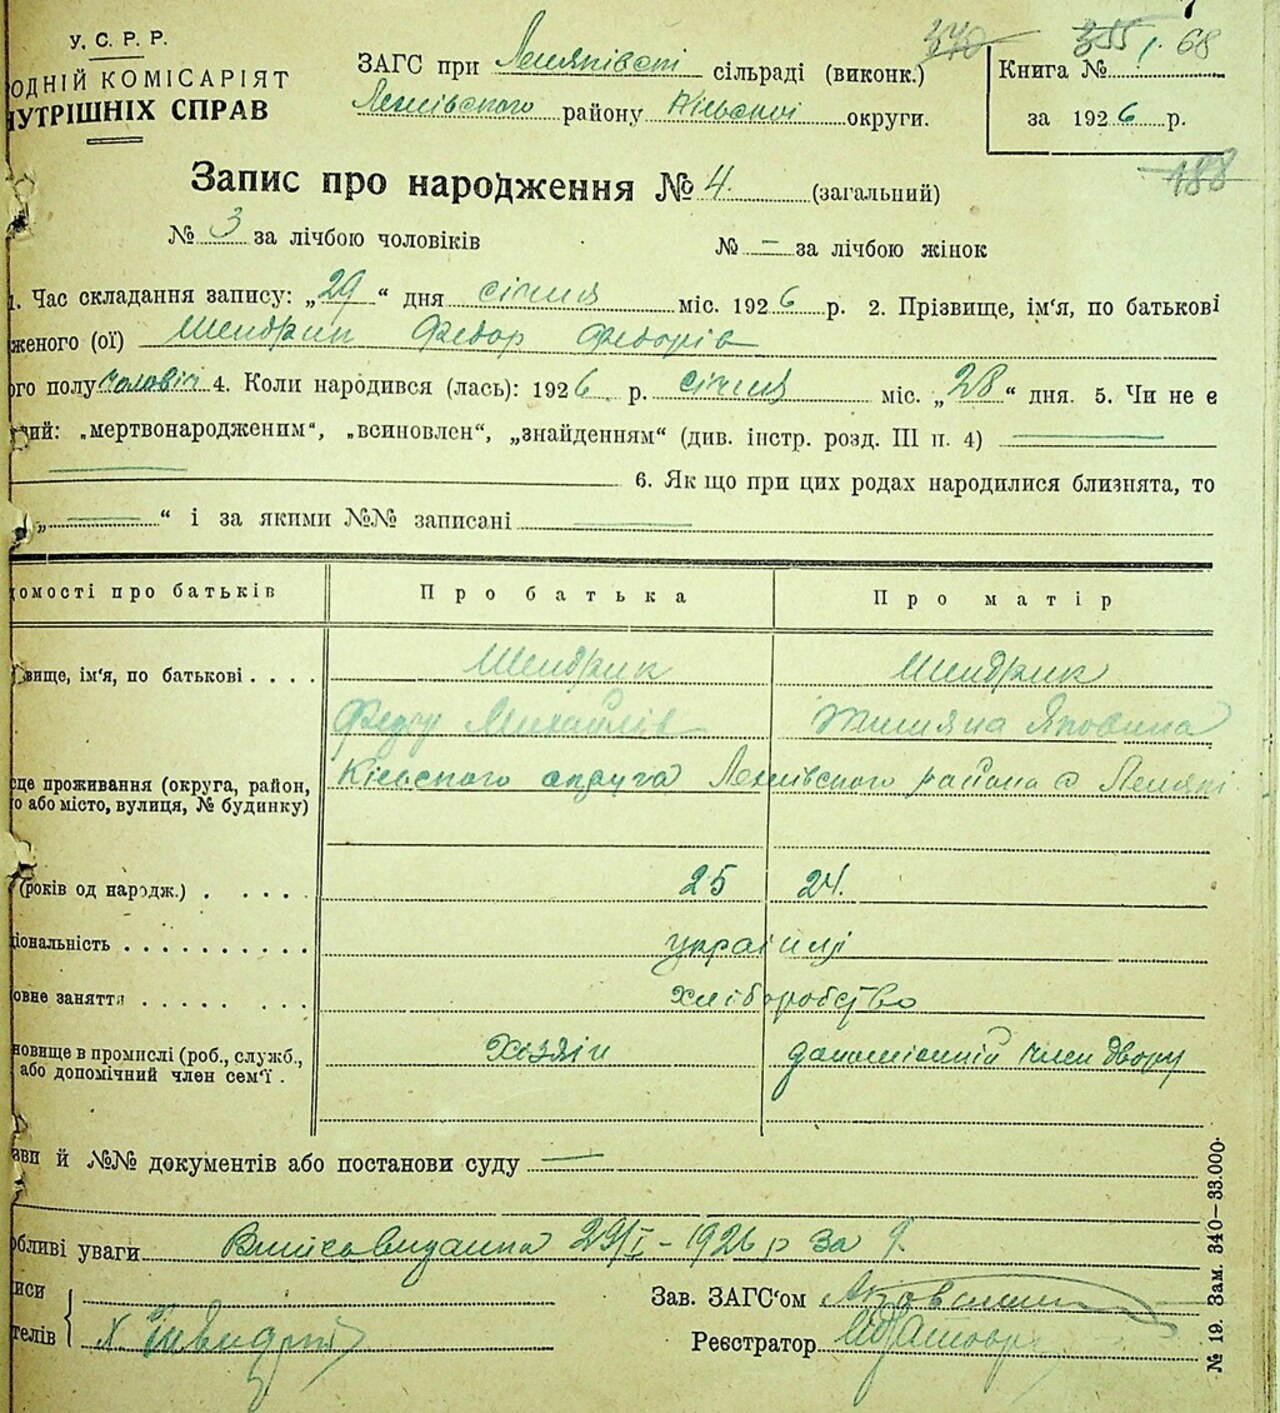 У. С. Р. Р.
ОДНІЙ КОМІСАРІЯТ
НУТРІШНІХ СПРАВ
ЗАГС при сільраді (виконк.)
району округи.
370
355 1. 68
Книга №
за 1926 р.
188
Запис про народження № 4. (загальний)
№ 3 за лічбою чоловіків № – за лічбою жінок
1. Час складання запису: „29“ дня січня міс. 1926 р. 2. Прізвище, ім'я, по батькові
женого (ої) Шендрик Федор Федорів
ого полу чоловіч 4. Коли народився (лась): 1926 р. січня міс. „28“ дня. 5. Чи не є
який: „мертвонародженим“, „всиновлен“, „знайденням“ (див. інстр. розд. III п. 4) —
— 6. Як що при цих родах народилися близнята, то
„—“ і за якими №№ записані —
домості про батьків Про батька Про матір
звище, ім'я, по батькові . . . . Шендрик Шендрик
Федор Михайлів
сце проживання (округа, район, Київского округа района с
о або місто, вулиця, № будинку)
(років од народж.) . . . . . 25 24.
ціональність . . . . . . . . . . українці
овне заняття . . . . . . . . хліборобство
новище в промислі (роб., служб., хазяїн допоміжній член двору
або допомічний член сем'ї .
зви й №№ документів або постанови суду —
обливі уваги видана 29/I – 1926 р за
иси Зав. ЗАГС'ом
телів Реєстратор
№ 19. Зам. 340—33.000.